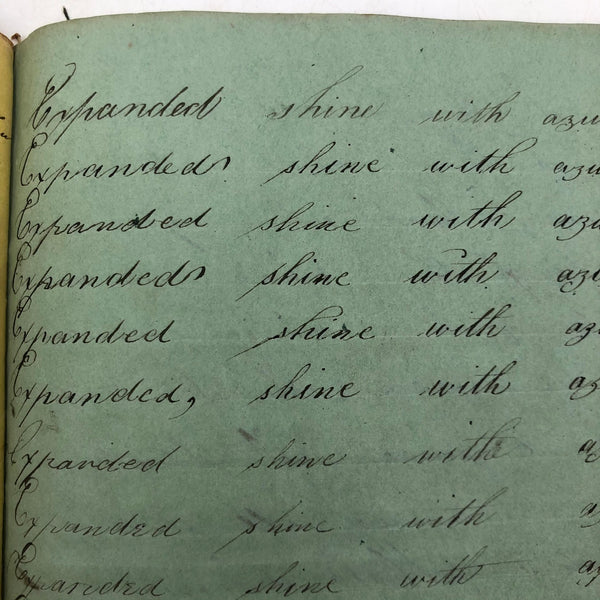 Expanded shine with azu
Expanded shine with azu
Expanded shine with azu
Expanded shine with azu
Expanded shine with az
Expanded, shine with az
Expanded shine with az
Expanded shine with a
Expanded shine with az